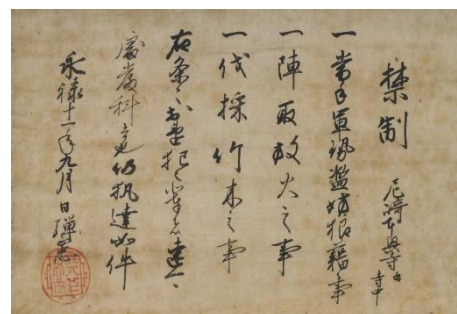 禁制 尼崎本興寺
一当手軍勢濫妨狼藉事
一陣取放火之事
一伐採竹木之事
右条々若違犯之輩者速
厳科 仍執達如件
永禄十一年九月 日 弾正忠